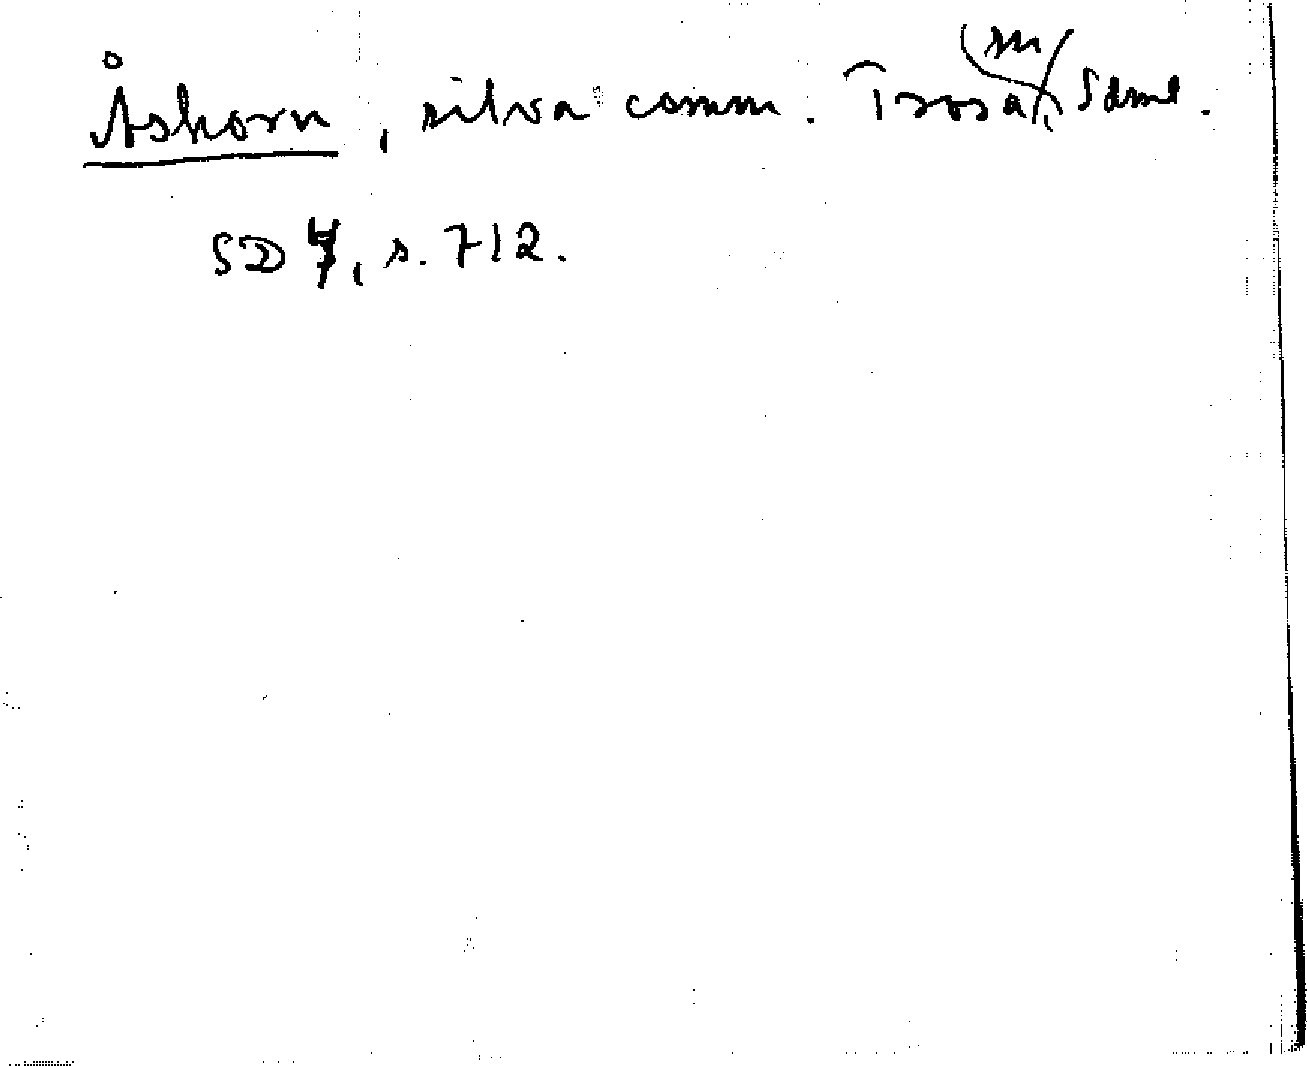 Åskorn, silva comm. Trosa, (sn) Sdml.
SD 4, s. 712.